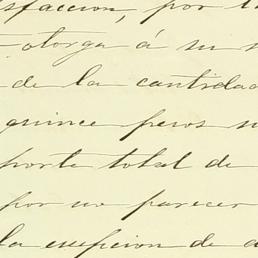 sfaccion, por l
otorga á su
de la cantidad
quince pesos
porte total de
por no parecer
la esepcion de d